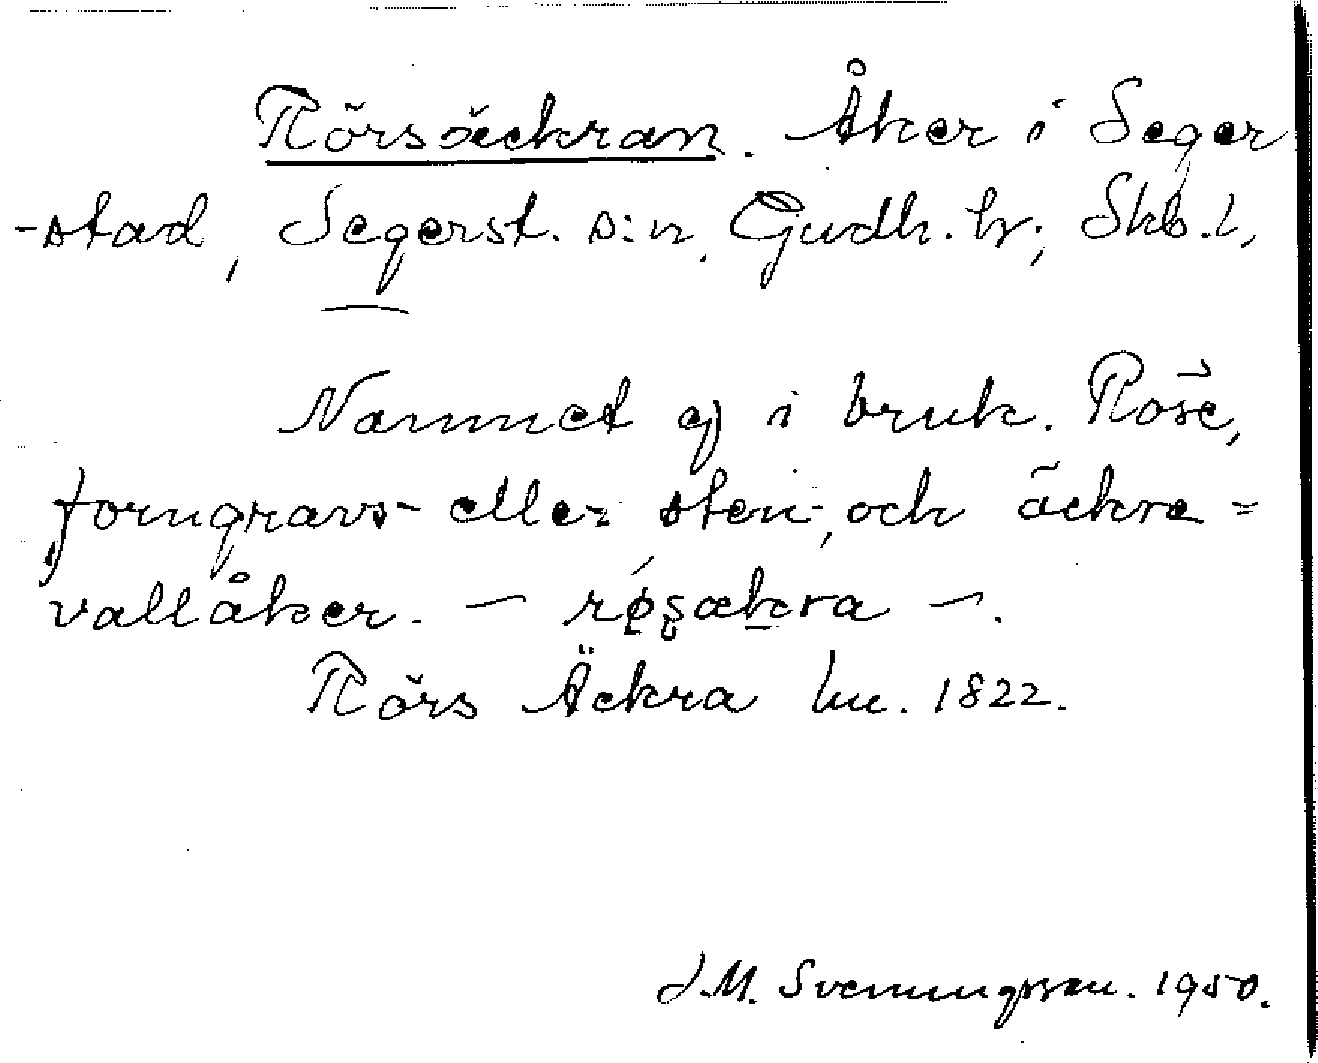 Rörsäckran. Åker i Seger
-stad, Segerst. s:n. Gudh. hr., Skb.l,
Namnet ej i bruk. Röse,
forngravs- eller sten-, och äckra =
vallåker. – rǿʂækra –.
Rörs Äckra hu. 1822.
J.M. Svenungsson. 1950.